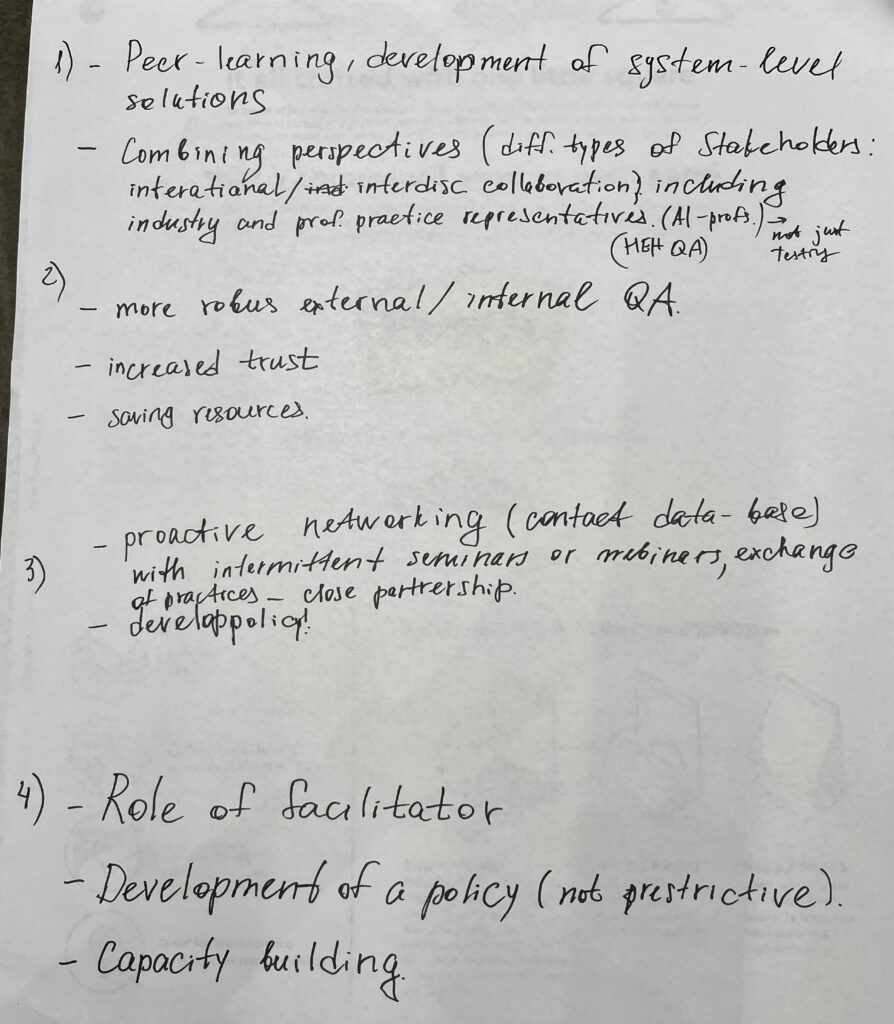 1) - Peer-learning, development of system-level
solutions
- Combining perspectives (diff. types of Stakeholders:
interational/ind interdisc collaboration) including
industry and prof. practice representatives. (AI-profs.) → not just
(HEH QA) testing
2)
- more robus external/internal QA.
- increased trust
- saving resources.
- proactive networking (contact data-base)
3) with intermittent seminars or mebiners, exchange
of practices - close partrership.
- develop policy!
4) - Role of facilitator
- Development of a policy (not prestrictive).
- Capacity building.